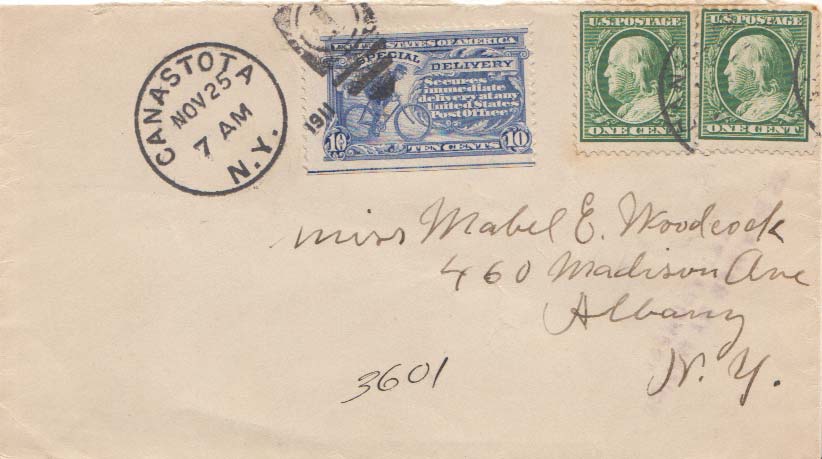 CANASTOTA
NOV 25
7 AM
N.Y.
1911
UNITED STATES OF AMERICA
SPECIAL DELIVERY
Secures
immediate
delivery at any
United States
Post Office.
10 TEN CENTS 10
U.S. POSTAGE
ONE CENT
U.S. POSTAGE
ONE CENT
Miss Mabel E. Woodcock
460 Madison Ave
Albany
N. Y.
3601